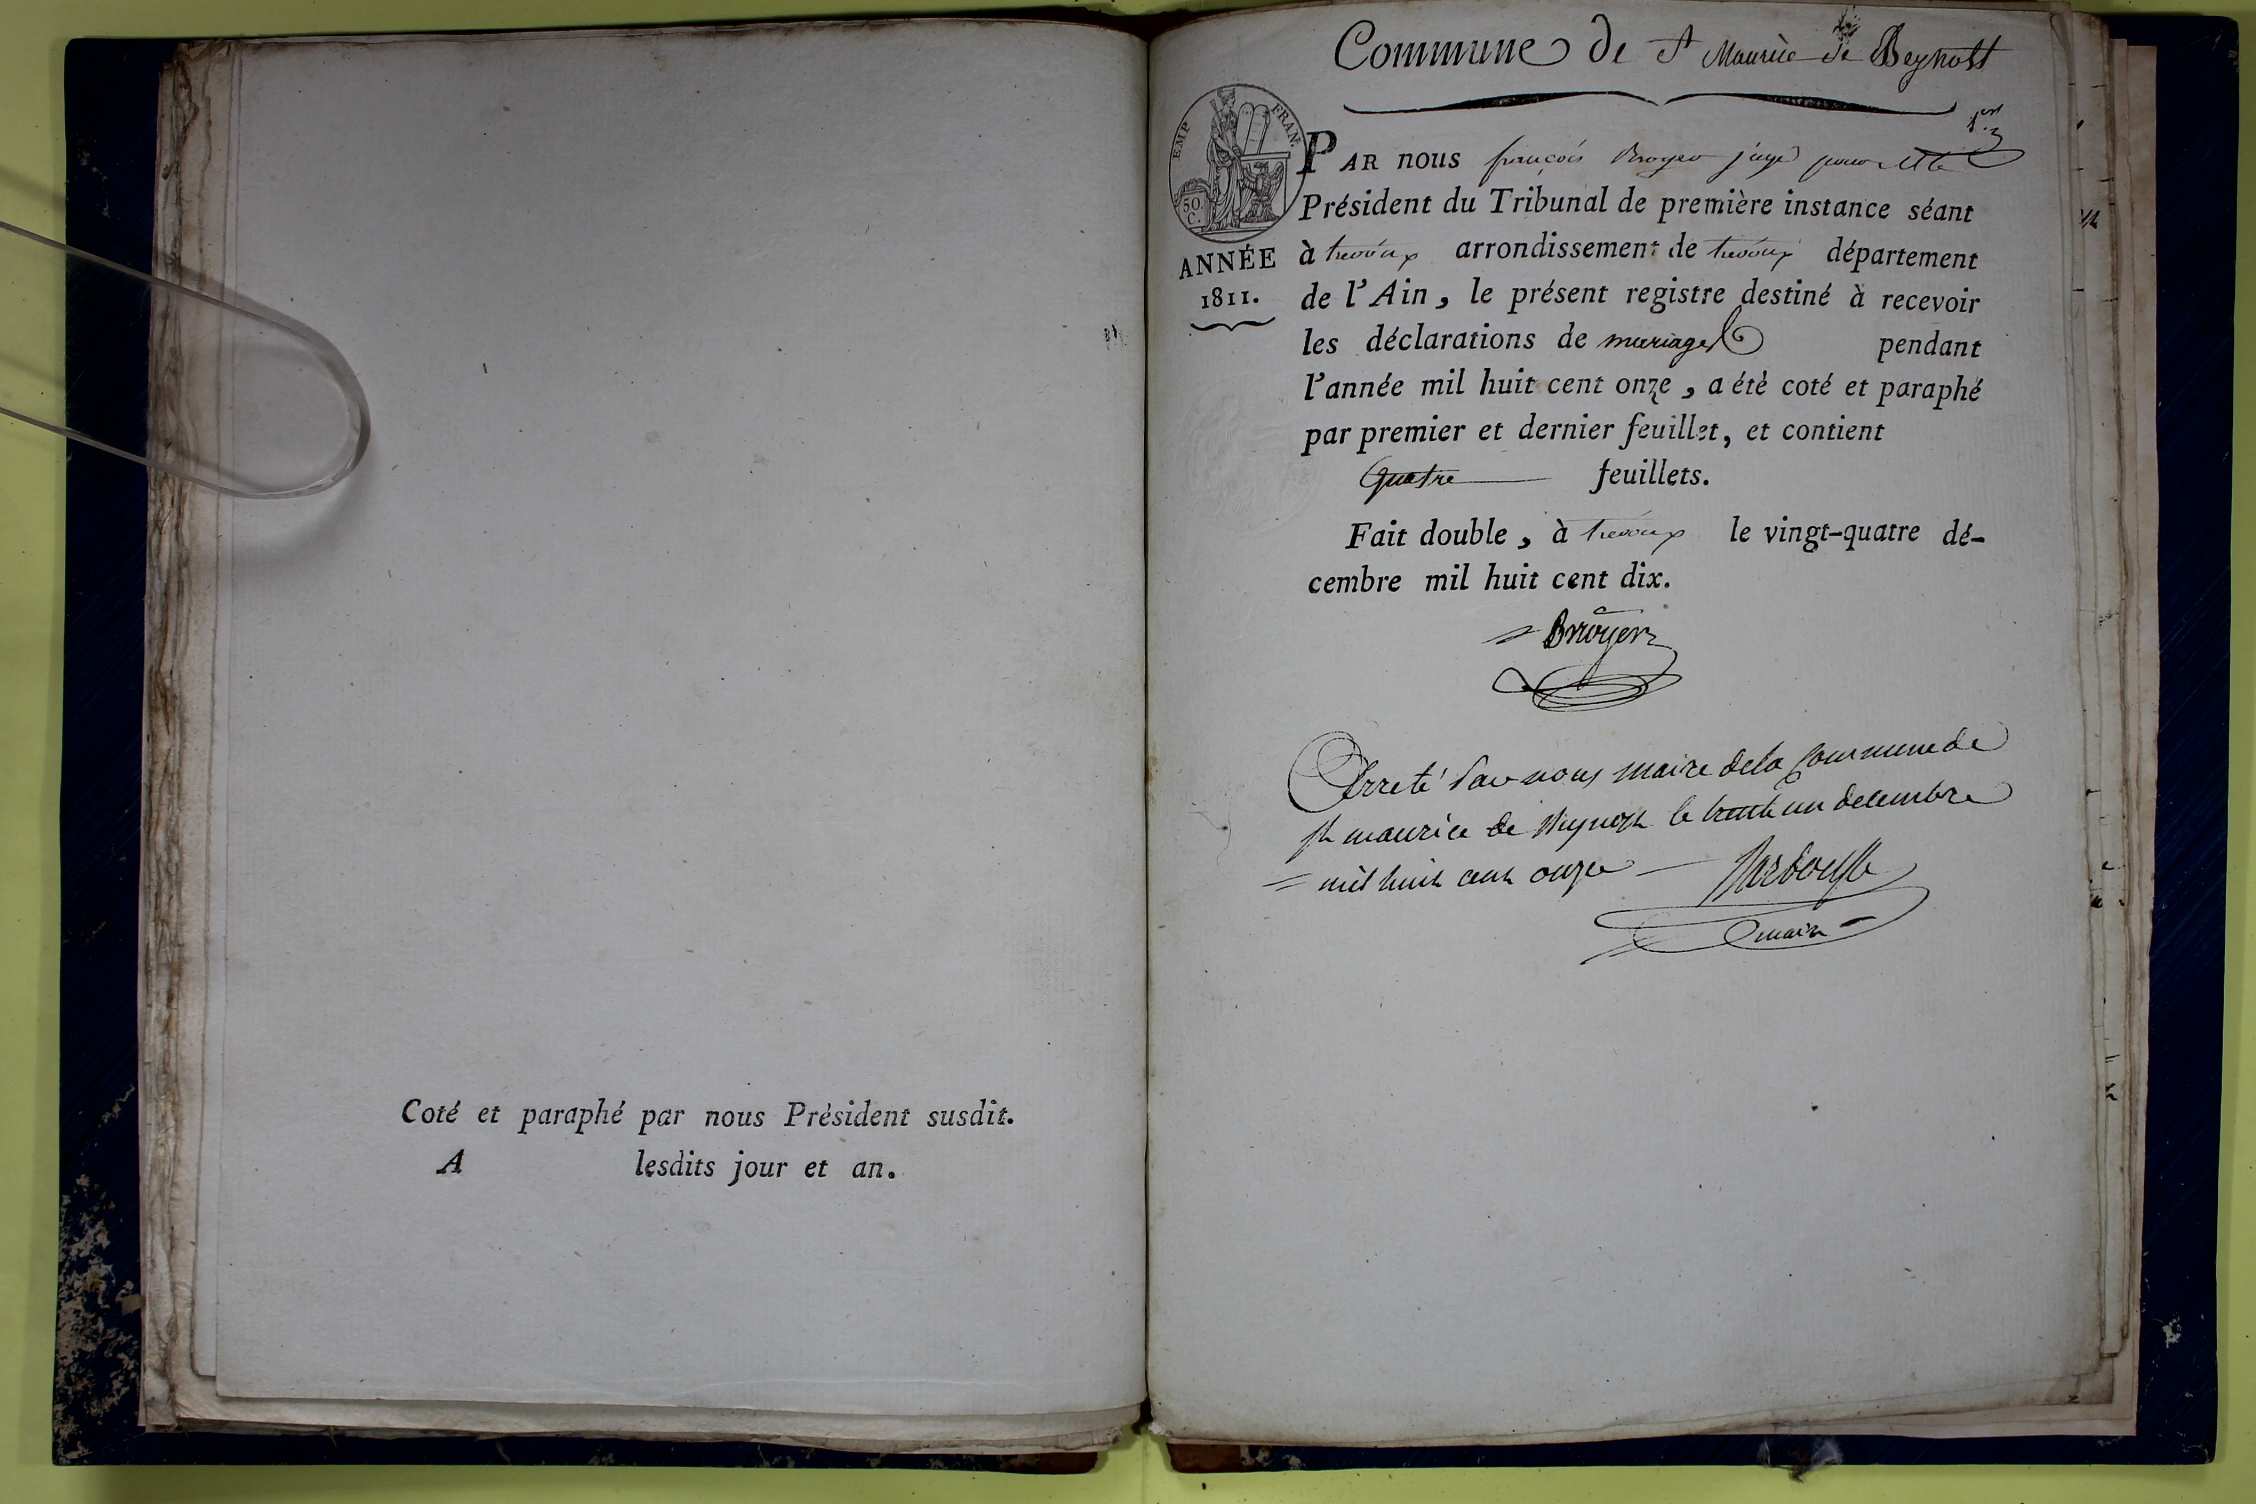 Coté et paraphé par nous Président susdit.
A lesdits jour et an.
Commune de St Maurice de Beynost
1er
EMP. FRAN.
50. C.
ANNÉE
1811.
PAR nous françois Broyer juge pour Mr le
Président du Tribunal de première instance séant
à trevoux arrondissement de trevoux département
de l'Ain, le présent registre destiné à recevoir
les déclarations de mariages pendant
l'année mil huit cent onze, a été coté et paraphé
par premier et dernier feuillet, et contient
Quatre feuillets.
Fait double, à trevoux le vingt-quatre dé-
cembre mil huit cent dix.
Broyer
Arreté par nous maire de la Commune de
St maurice de Beynost le trente un decembre
mil huit cent onze
maire